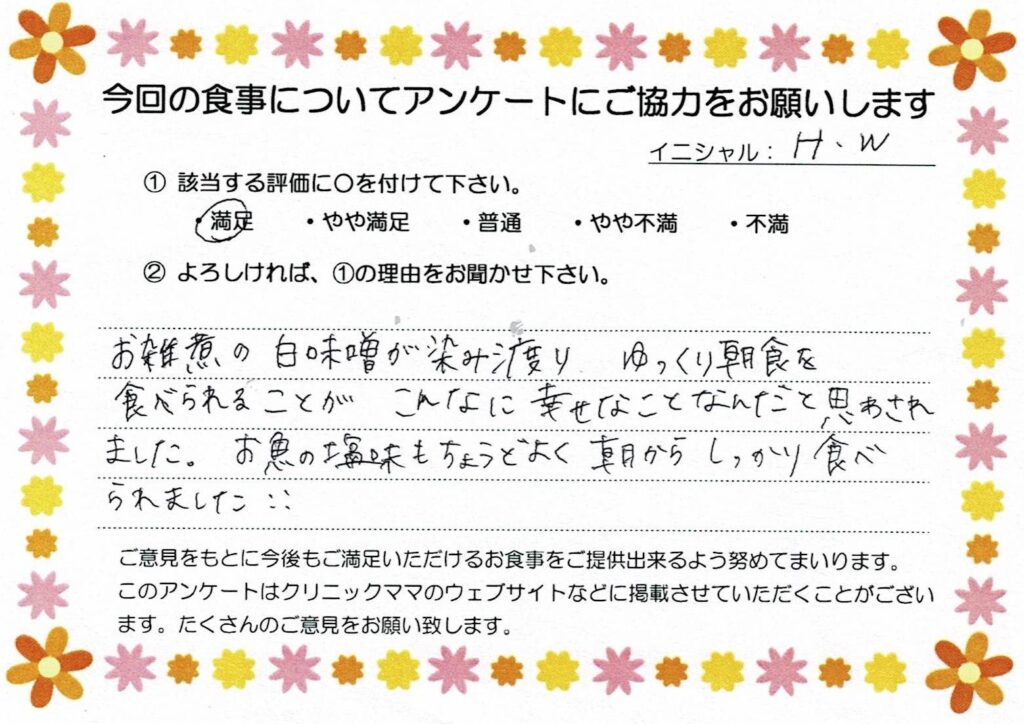 今回の食事についてアンケートにご協力をお願いします
イニシャル： H・W
① 該当する評価に〇を付けて下さい。
・満足 ・やや満足 ・普通 ・やや不満 ・不満
② よろしければ、①の理由をお聞かせ下さい。
お雑煮の 白味噌が染み渡り ゆっくり朝食を
食べられることが こんなに 幸せなことなんだと思わされ
ました。 お魚の塩味もちょうどよく 朝から しっかり 食べ
られました ::
ご意見をもとに今後もご満足いただけるお食事をご提供出来るよう努めてまいります。
このアンケートはクリニックママのウェブサイトなどに掲載させていただくことがござい
ます。たくさんのご意見をお願い致します。